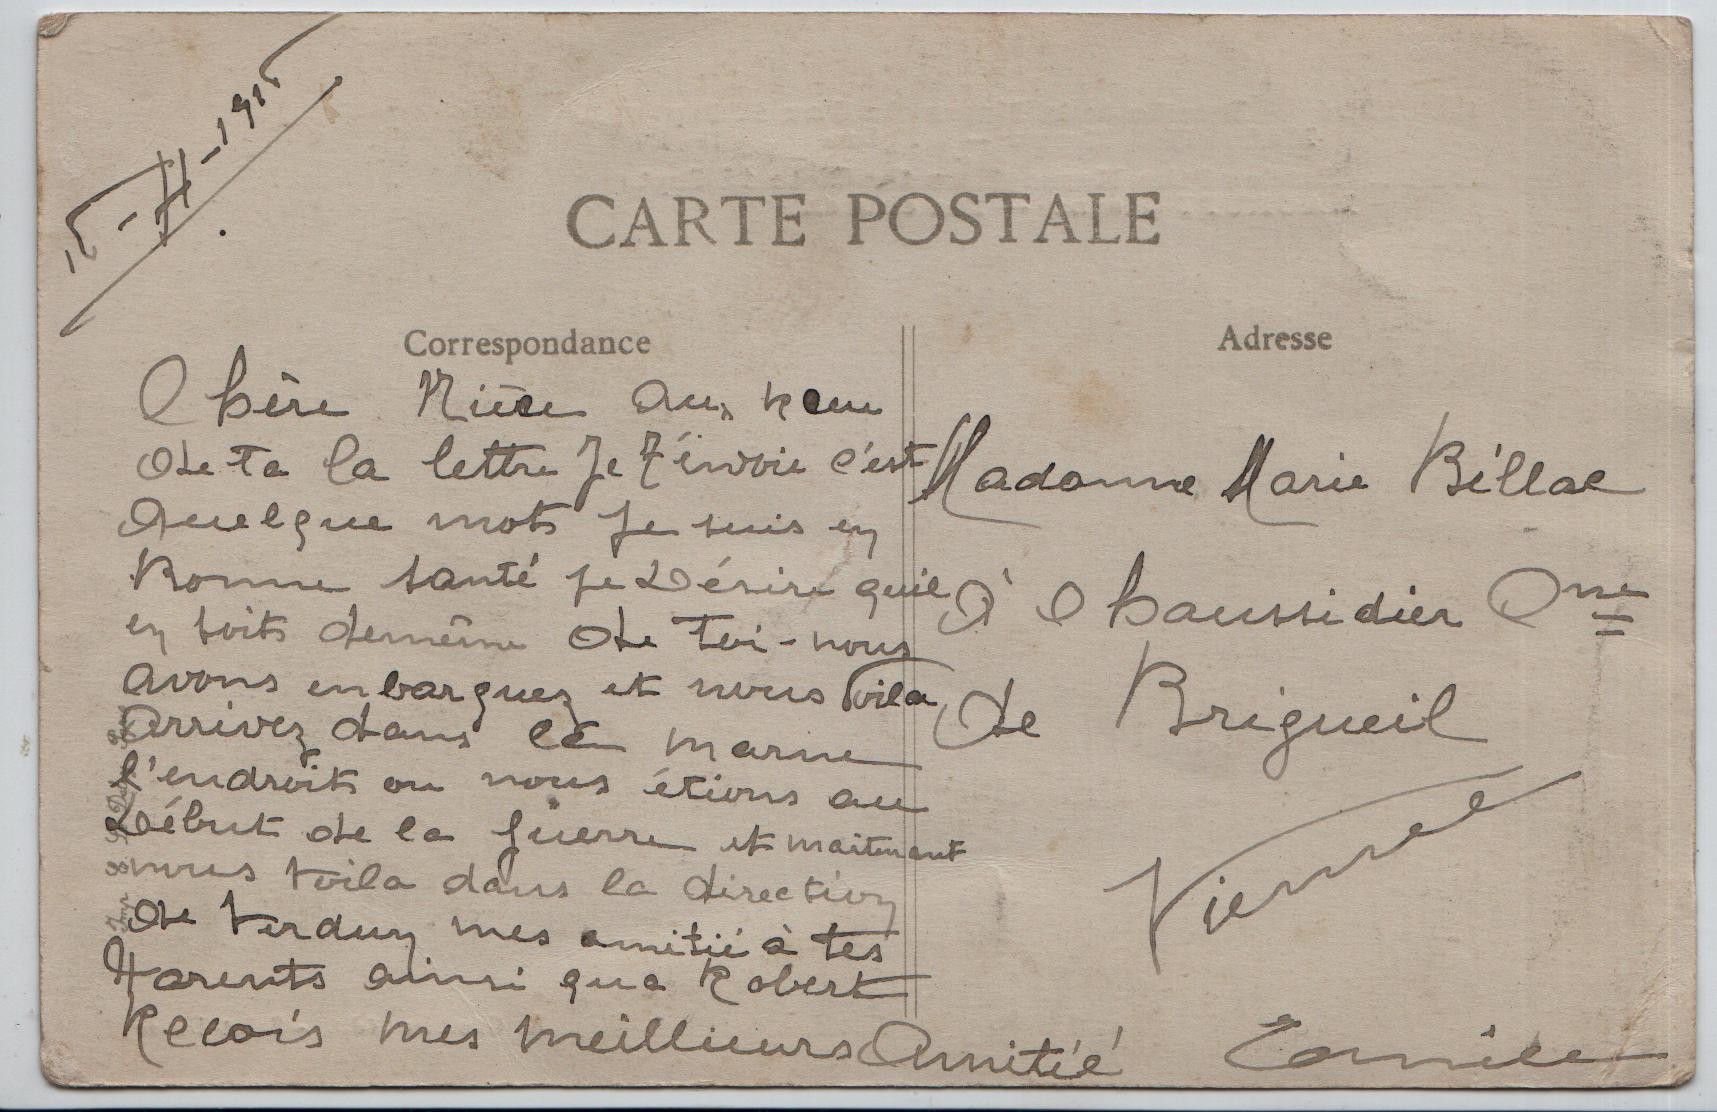 15-II-1915
CARTE POSTALE
Correspondance
Adresse
Chère Nièce aux recu
de ta la lettre Je T'envoie c'est
Quelque mots Je suis en
Bonne santé je Désire quil
en soit demême de Toi - nous
avons enbarquez et nous Voila
arrivez dans la marne
l'endroit ou nous étions au
Début de la guerre et maitenant
nous voila dans la direction
de Verdun mes amitié à tes
Parents ainsi qua Robert
Recois mes meillieurs Amitié
Madame Marie Billac
à Chaussidier Cne
de Brigueil
Vienne